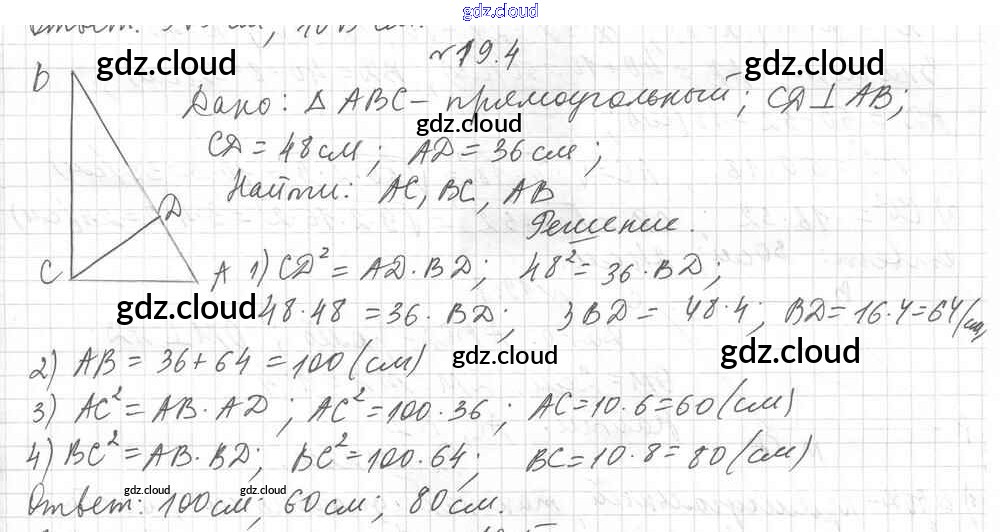 gdz.cloud
Ответ:
№19.4
B gdz.cloud gdz.cloud
Дано: Δ ABC – прямоугольный; CD ⊥ AB;
gdz.cloud
CD = 48 см; AD = 36 см;
Найти: AC, BC, AB
D Решение.
C A 1) CD² = AD · BD; 48² = 36 · BD;
gdz.cloud 48·48 = 36 · BD; 3BD = 48·4; BD = 16·4=64(см)
gdz.cloud gdz.cloud
2) AB = 36 + 64 = 100 (см)
3) AC² = AB · AD; AC² = 100·36; AC = 10·6 = 60 (см)
4) BC² = AB · BD; BC² = 100·64; BC = 10·8 = 80 (см)
gdz.cloud gdz.cloud
Ответ: 100см; 60см; 80см.